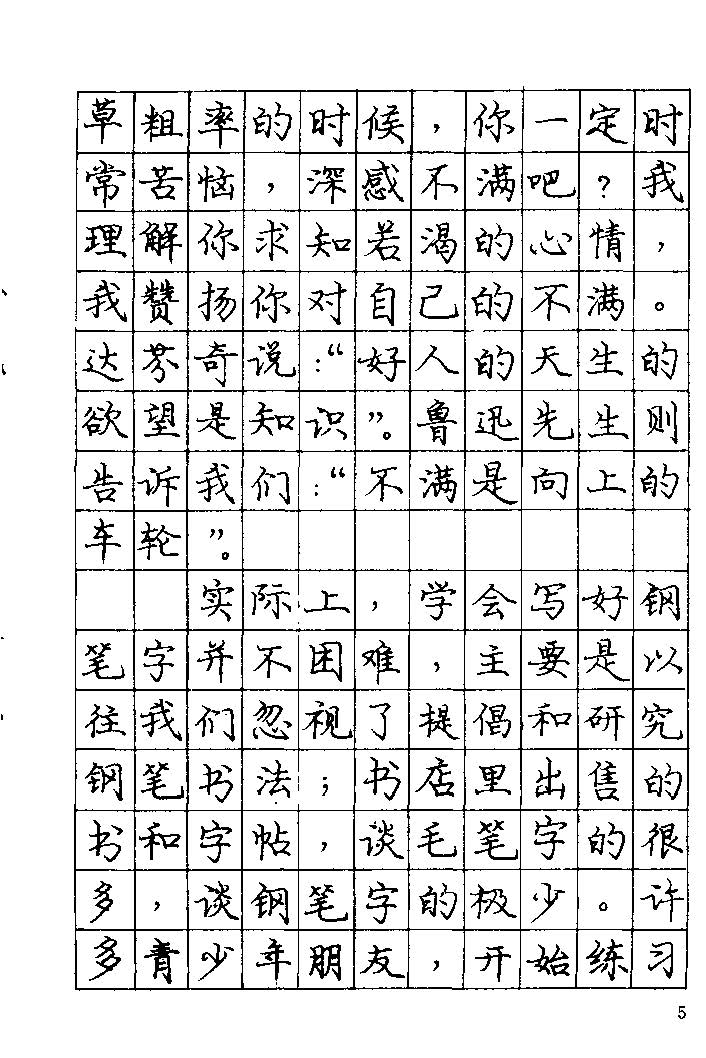 草粗率的时候，你一定时
常苦恼，深感不满吧？我
理解你求知若渴的心情，
我赞扬你对自己的不满。
达芬奇说：“好人的天生的
欲望是知识”。鲁迅先生则
告诉我们：“不满是向上的
车轮”。
实际上，学会写好钢
笔字并不困难，主要是以
往我们忽视了提倡和研究
钢笔书法；书店里出售的
书和字帖，谈毛笔字的很
多，谈钢笔字的极少。许
多青少年朋友，开始练习
5